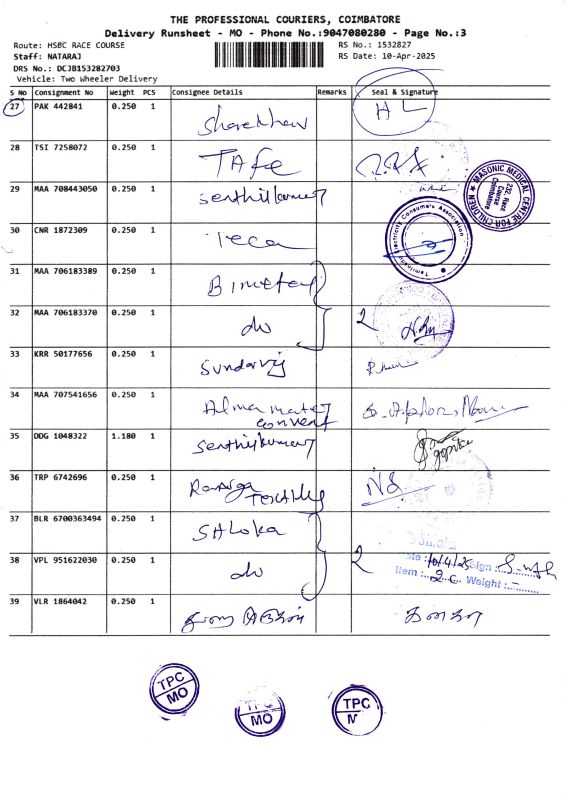 THE PROFESSIONAL COURIERS, COIMBATORE
Delivery Runsheet - MO - Phone No.:9047080280 - Page No.:3
Route: HSBC RACE COURSE
RS No.: 1532827
Staff: NATARAJ
RS Date: 10-Apr-2025
DRS No.: DCJB153282703
Vehicle: Two Wheeler Delivery
S No Consignment No Weight PCS Consignee Details Remarks Seal & Signature
27 PAK 442841 0.250 1 HL
28 TSI 7258072 0.250 1 TAFE
29 MAA 708443050 0.250 1 Senthilkumar
MASONIC MEDICAL CENTRE FOR CHILDREN
232, Race Course Coimbatore
30 CNR 1872309 0.250 1 Teca
Tamilnadu Electricity Consumer's Association
31 MAA 706183389 0.250 1
32 MAA 706183370 0.250 1 do 2
33 KRR 50177656 0.250 1 Sundarraj
34 MAA 707541656 0.250 1 Alma mater
convent
35 DDG 1048322 1.180 1 Senthilkumar
36 TRP 6742696 0.250 1 Textiles NS
37 BLR 6700363494 0.250 1 SHLOKA
38 VPL 951622030 0.250 1 do 2
Date : 10/4/25 Sign :
Item : 2 C Weight : -
39 VLR 1864042 0.250 1
TPC MO
TPC MO
TPC M